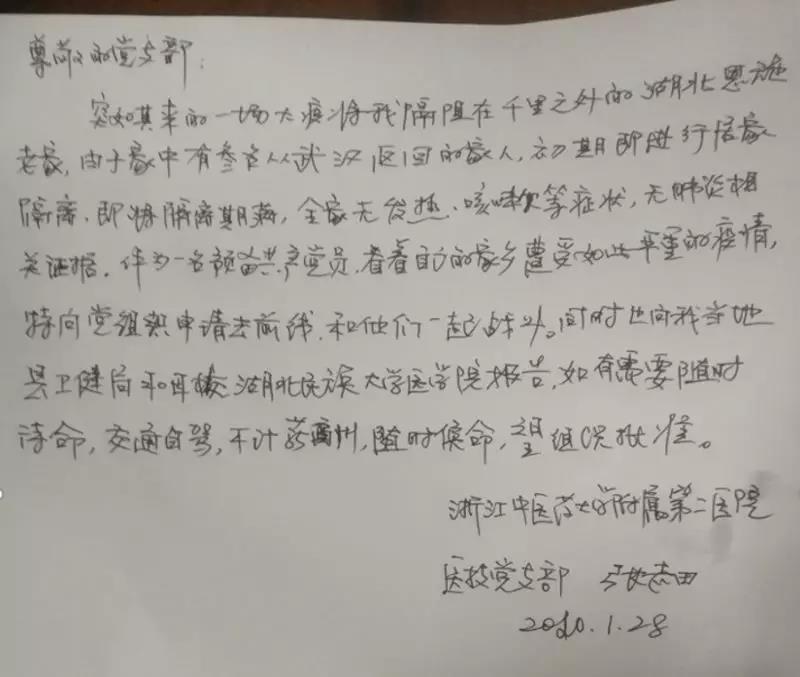 尊敬的党支部：
突如其来的一场大疫将我隔阻在千里之外的湖北恩施
老家，由于家中有叁名从武汉返回的家人，初期即进行居家
隔离，即将隔离期满，全家无发热、咳嗽等症状，无肺炎相
关证据，作为一名预备共产党员，看着自己的家乡遭受如此严重的疫情，
特向党组织申请去前线，和他们一起战斗。同时也向我当地
县卫健局和母校湖北民族大学医学院报告，如有需要随时
待命，交通自驾，不计薪酬，随时候命，望组织批准。
浙江中医药大学附属第二医院
医技党支部 张志田
2020.1.28